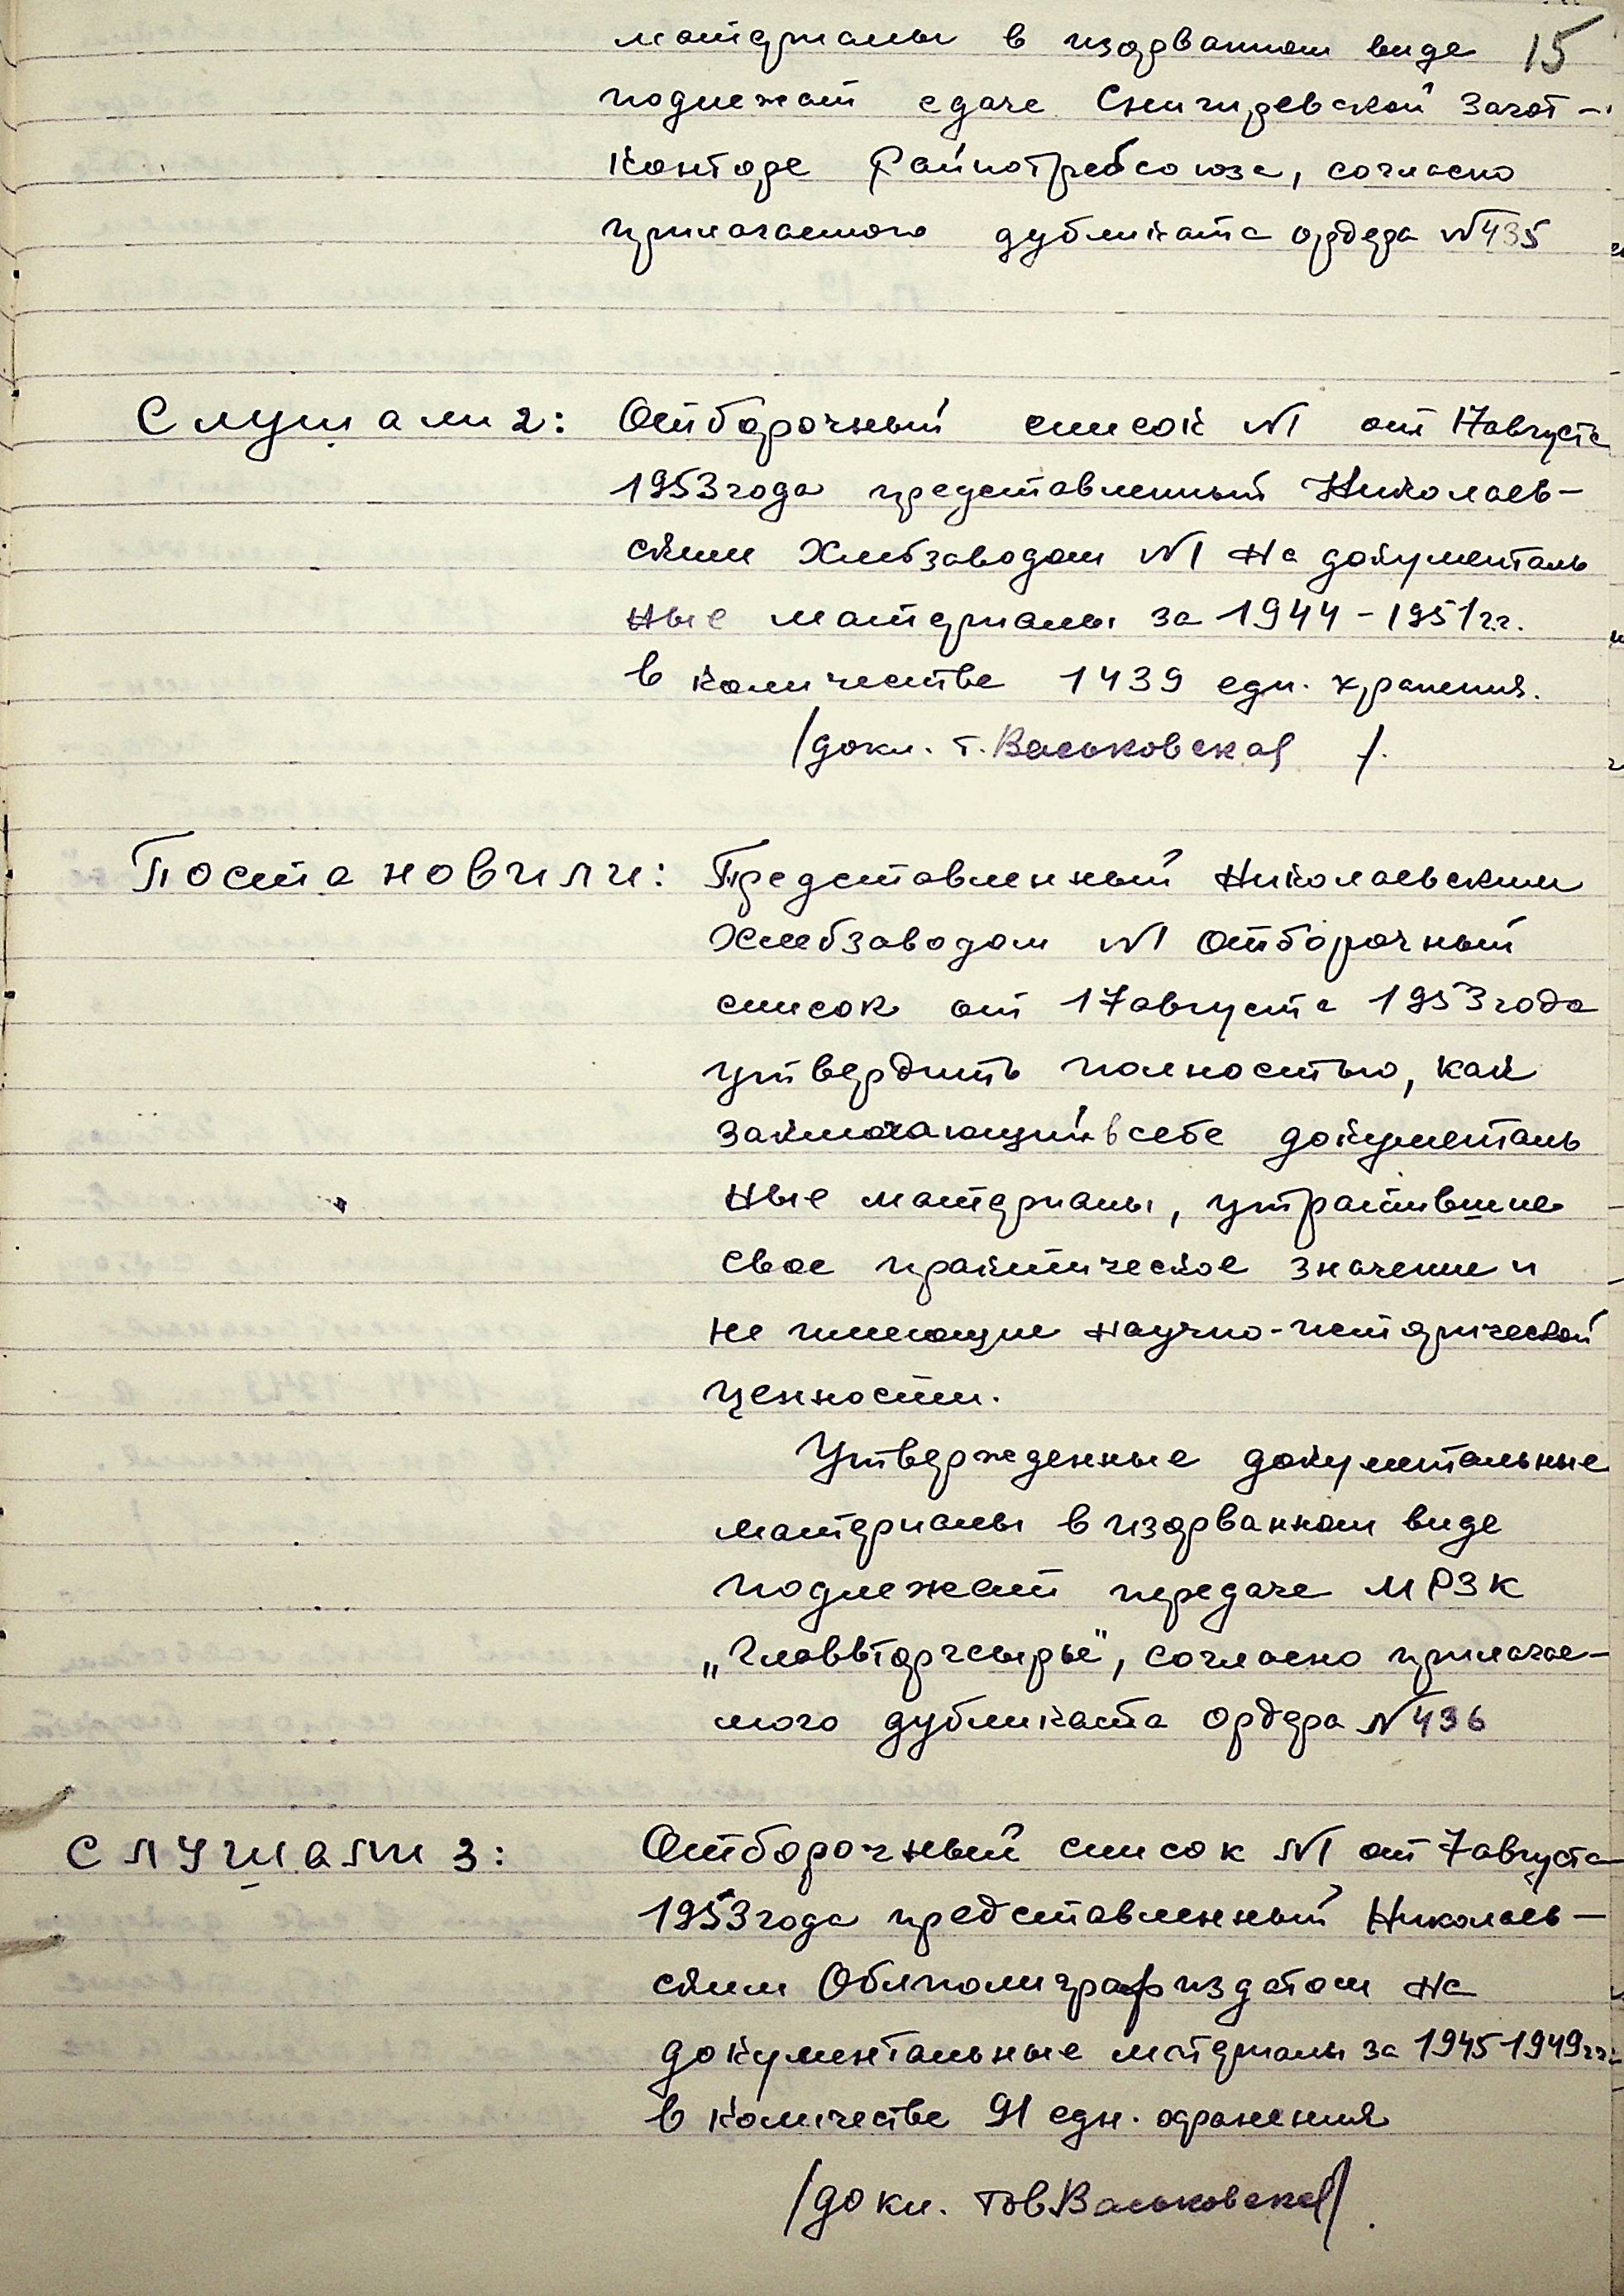 15
материалы в изорванном виде
подлежат сдаче Снигиревской Загот-
Конторе Райпотребсоюза, согласно
прилагаемого дубликата ордера №435
Слушали 2: Отборочный список №1 от 17августа
1953года представленный Николаев-
ским Хлебзаводом №1 на документаль
ные материалы за 1944-1951гг.
в количестве 1439 един. хранения.
/докл. т. Васьковская /.
Постановили: Представленный Николаевским
Хлебзаводом №1 Отборочный
список от 17августа 1953года
утвердить полностью, как
заключающий в себе документаль
ные материалы, утратившие
свое практическое значение и
не имеющие научно-исторической
ценности.
Утвержденные документальные
материалы в изорванном виде
подлежат передаче МРЗК
„Главвторчсырье", согласно прилагае-
мого дубликата ордера №436
Слушали 3: Отборочный список №1 от 7августа
1953года представленный Николаев-
ским Облполиграфиздатом на
документальные материалы за 1945-1949гг.
в количестве 91 един. хранения
/докл. тов. Васьковская/.